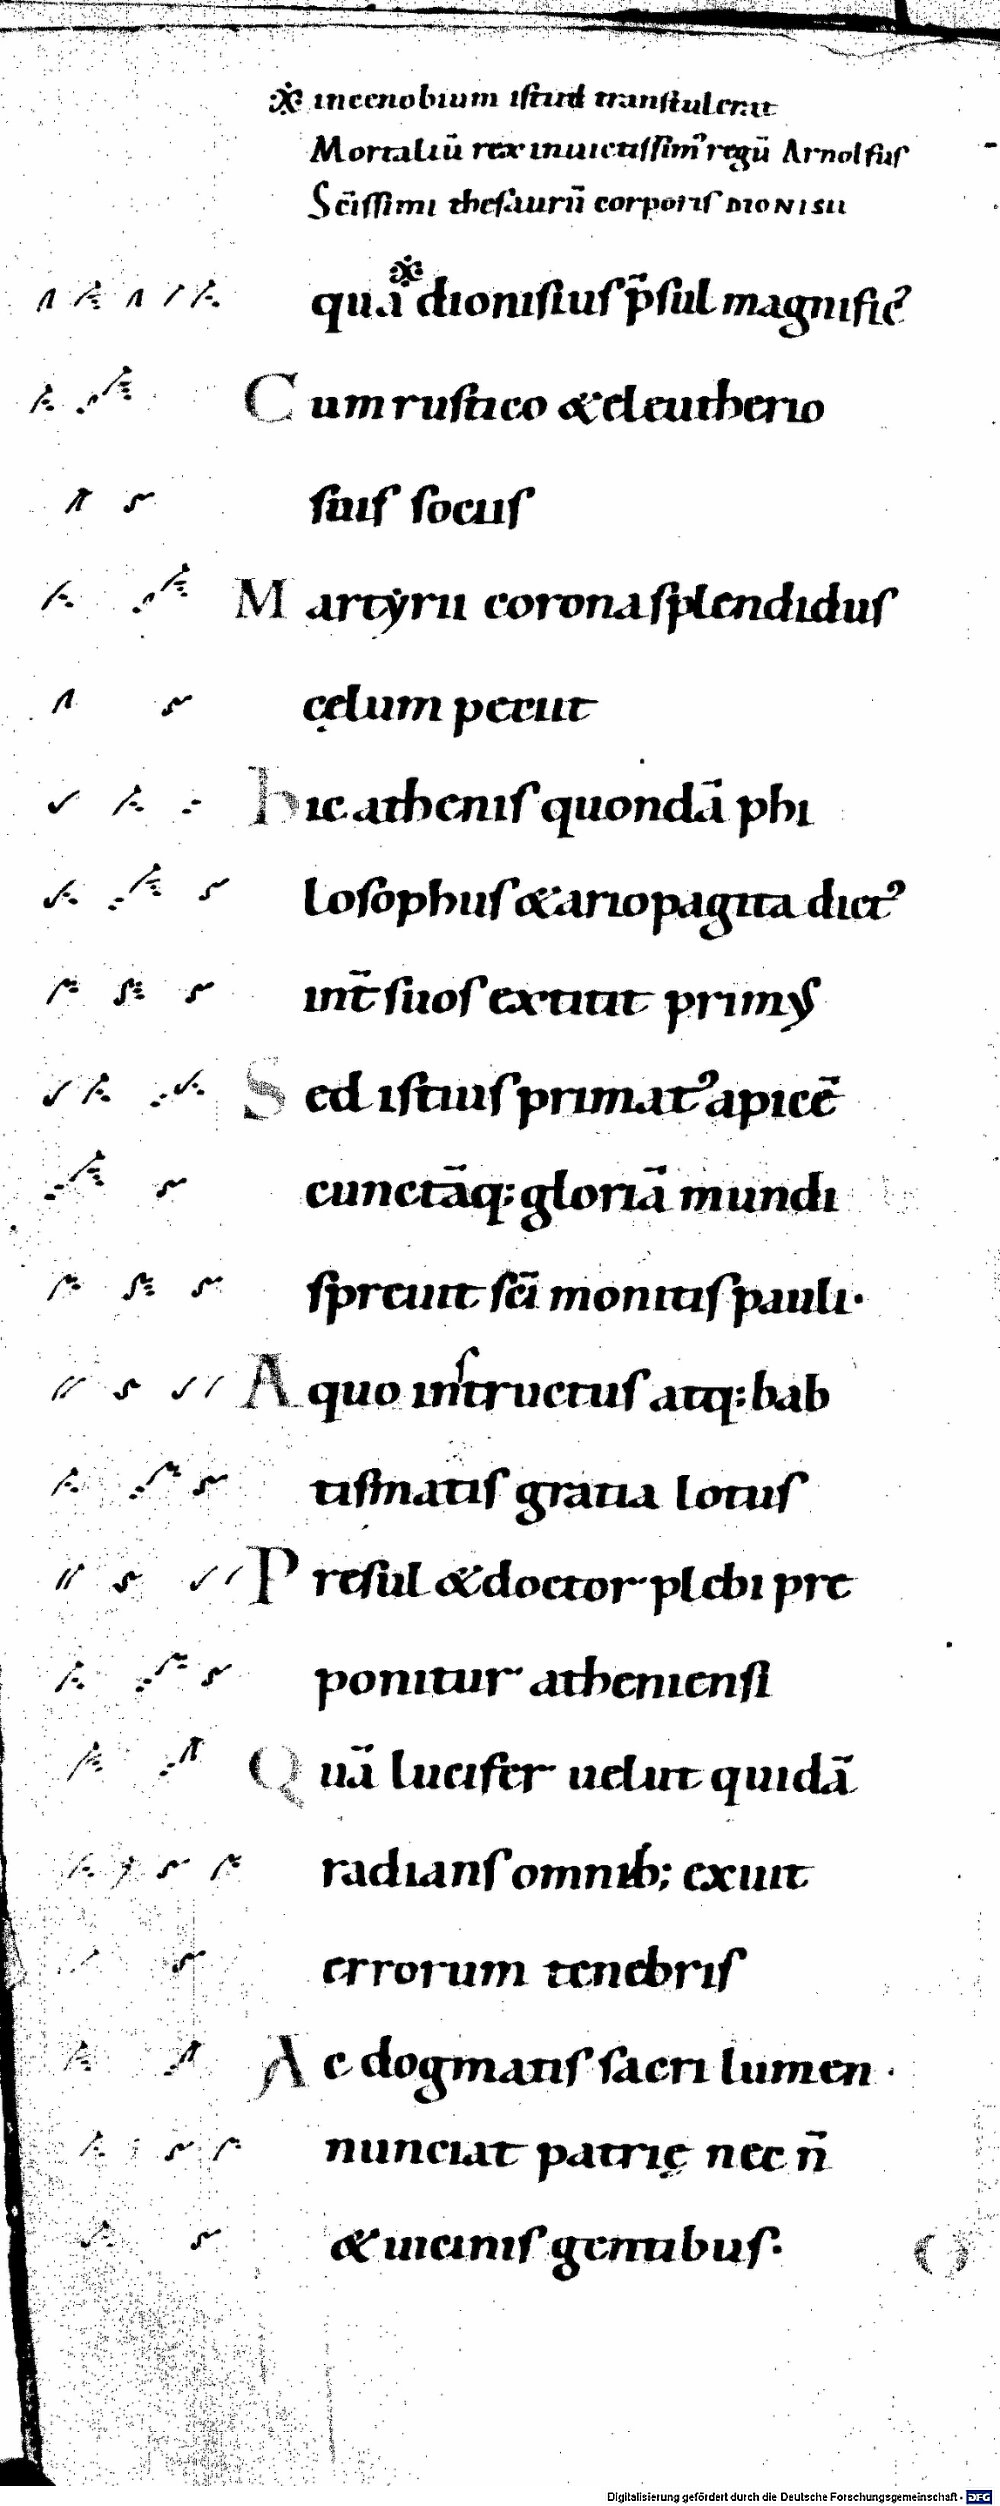 in cenobium istud transtulerat
Mortaliū rex inuictissim᾽ regū Arnolfus
Scīssimi thesaurū corporis DIONISII
quā dionisius p̄sul magnific᾽
Cum rustico & eleutherio
suis sociis
Martẏrii corona splendidus
cęlum petiit
hic athenis quondā phi
losophus & ariopagita dict᾽
int̄ suos extitit primus
Sed istius primat᾽ apicē
cunctāq; gloriā mundi
spreuit sc̄i monitis pauli·
A quo instructus atq; bab
tismatis gratia lotus
Presul & doctor plebi pre
ponitur atheniensi
Quā lucifer uelut quidā
radians omnib; exuit
errorum tenebris
Ac dogmatis sacri lumen·
nunciat patrię nec n̄
& uicinis gentibus·
Digitalisierung gefördert durch die Deutsche Forschungsgemeinschaft - DFG